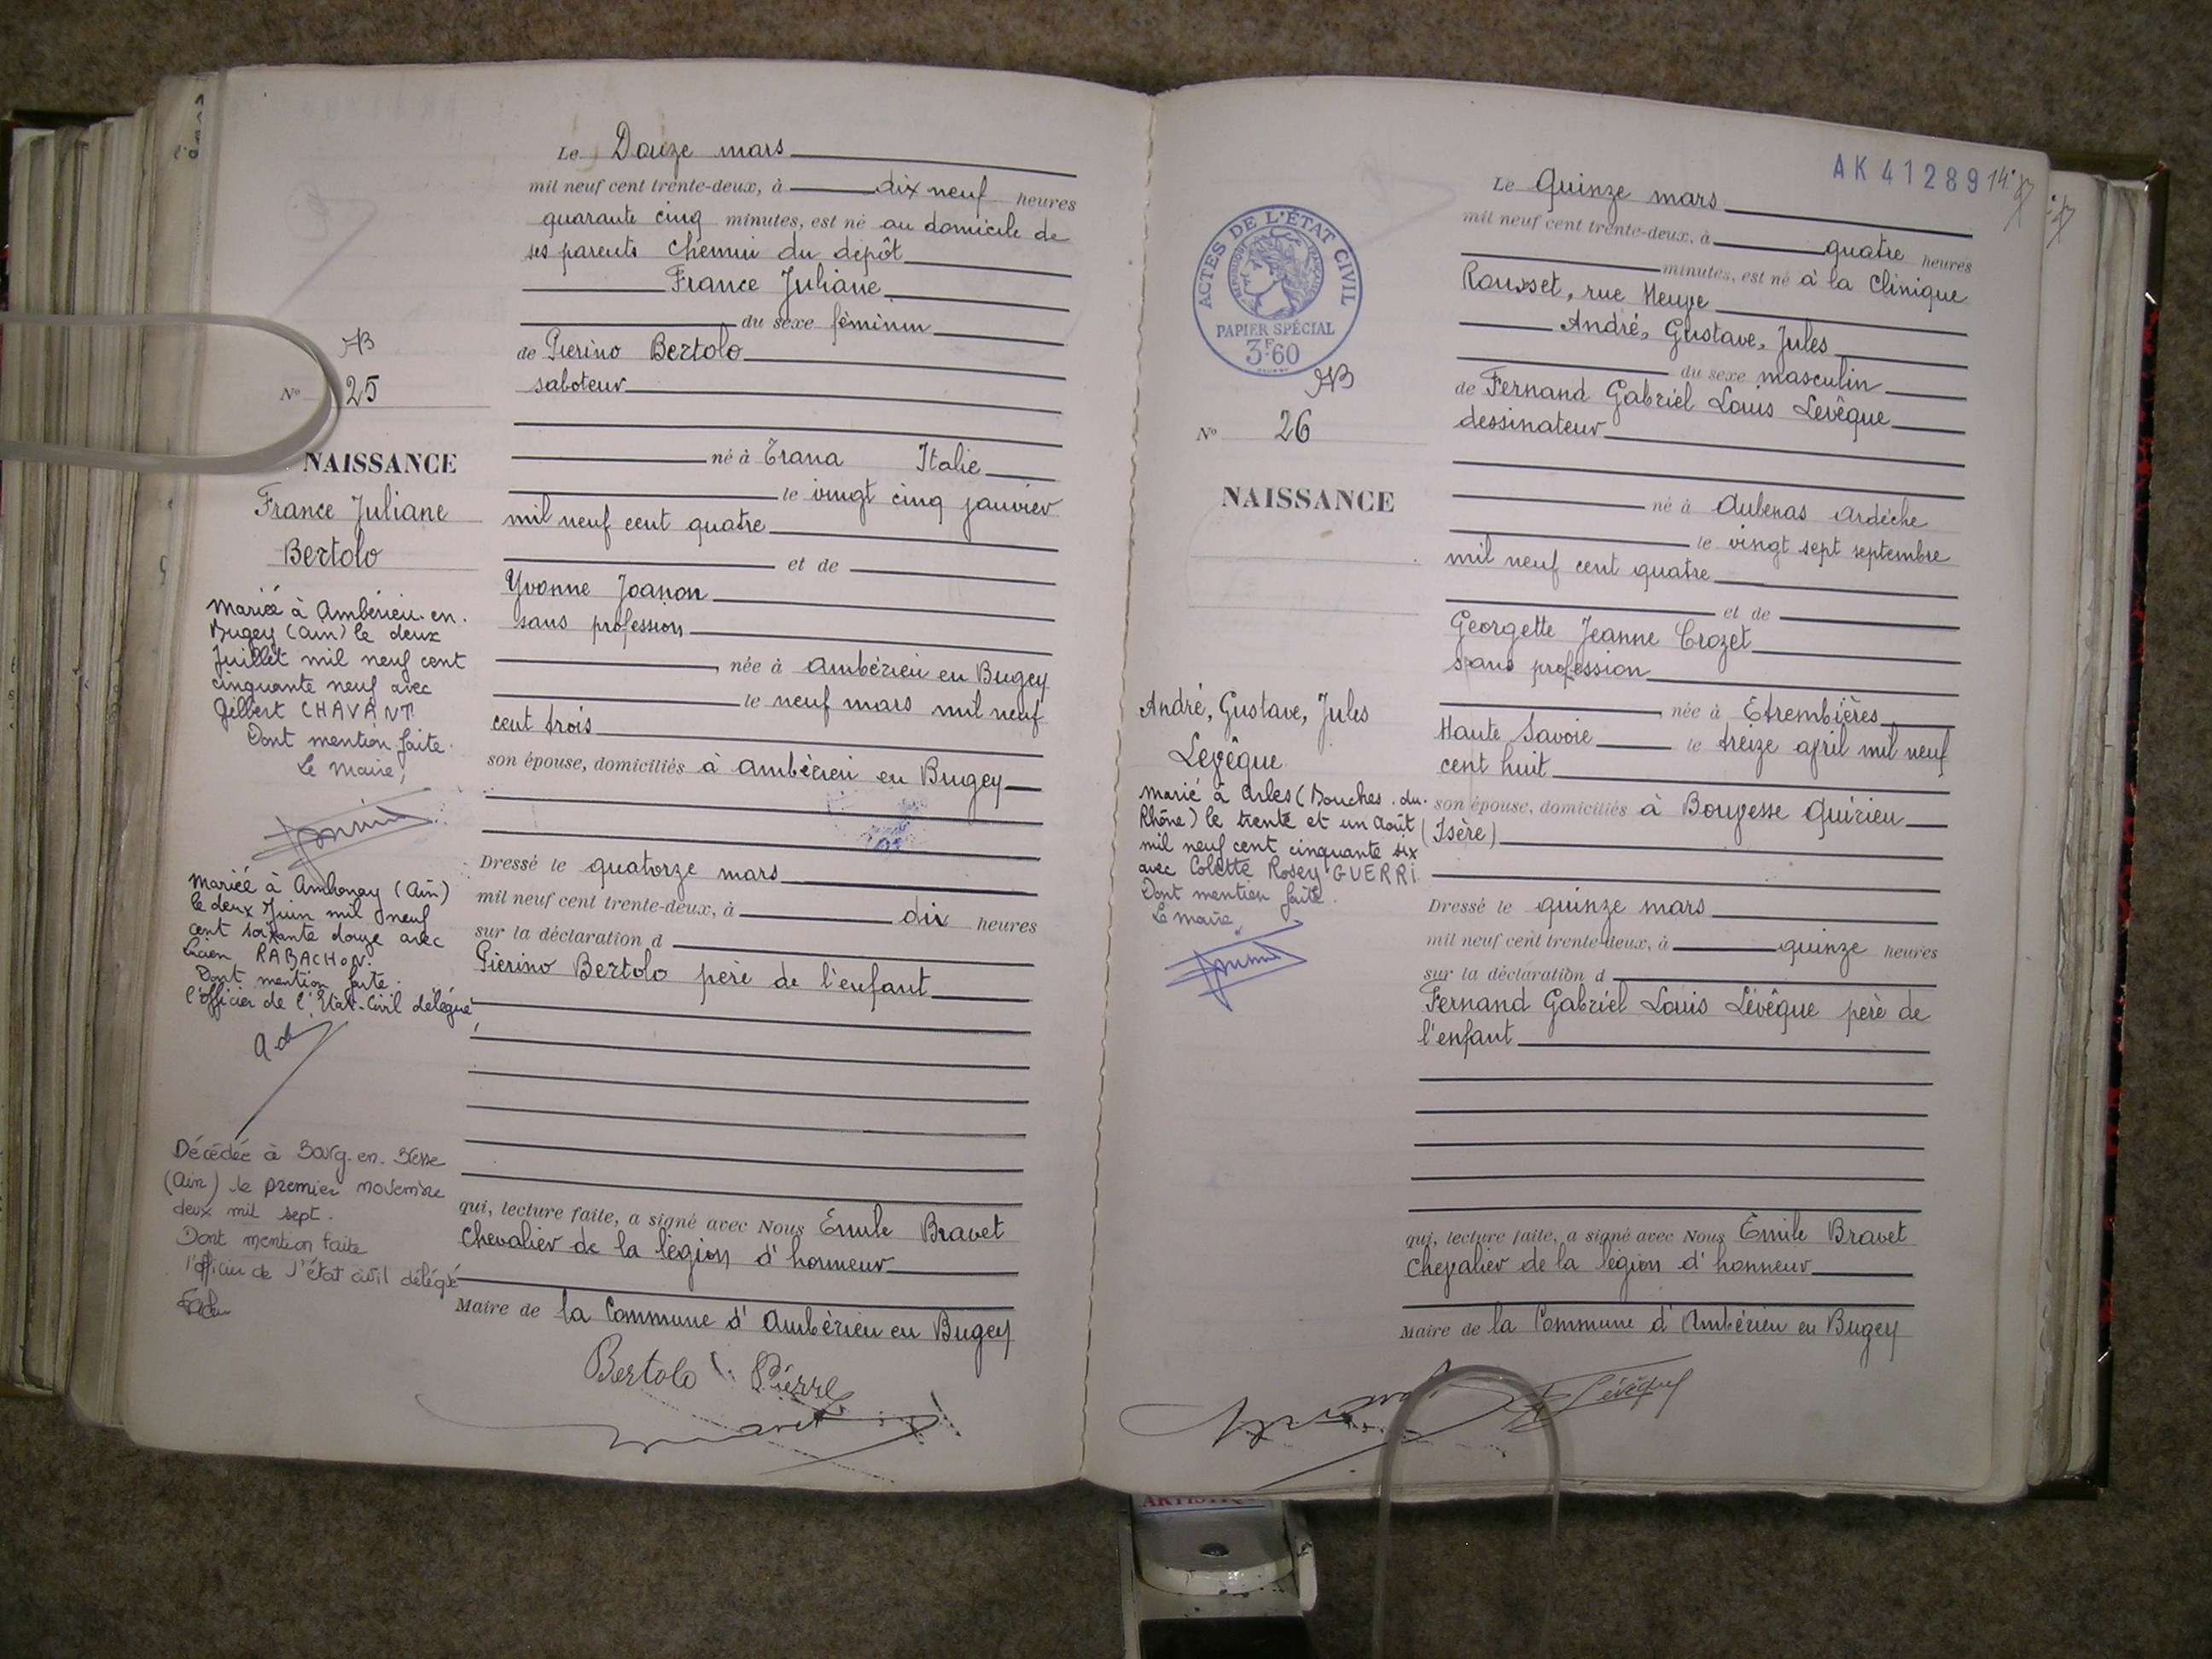 Le Douze mars
mil neuf cent trente-deux, à dix neuf heures
quarante cinq minutes, est né au domicile de
ses parents chemin du dépôt
France Juliane
du sexe féminin
de Pierino Bertolo
saboteur
né à Trana Italie
le vingt cinq janvier
mil neuf cent quatre
et de
Yvonne Joanon
sans profession
née à Ambérieu en Bugey
le neuf mars mil neuf
cent trois
son épouse, domiciliés à Ambérieu en Bugey
Dressé le quatorze mars
mil neuf cent trente-deux, à dix heures
sur la déclaration d
Pierino Bertolo père de l'enfant
qui, lecture faite, a signé avec Nous Émile Bravet
Chevalier de la légion d'honneur
Maire de la Commune d'Ambérieu en Bugey
Bertolo Pierre
N° 25
NAISSANCE
France Juliane
Bertolo
Mariée à Ambérieu-en-
Bugey (Ain) le deux
Juillet mil neuf cent
cinquante neuf avec
Gilbert CHAVANT
Dont mention faite.
Le Maire,
Mariée à Ambronay (Ain)
le deux Juin mil neuf
cent soixante douze avec
Lucien RABACHON.
Dont mention faite.
l'officier de l'Etat-Civil délégué
Décédée à Bourg-en-Bresse
(Ain) le premier novembre
deux mil sept.
Dont mention faite
l'officier de l'état civil délégué
AK 41289
Le Quinze mars
mil neuf cent trente-deux, à quatre heures
minutes, est né à la Clinique
Rousset, rue Neuve
André, Gustave, Jules
du sexe masculin
de Fernand Gabriel Louis Levêque
dessinateur
né à Aubenas Ardèche
le vingt sept septembre
mil neuf cent quatre
et de
Georgette Jeanne Crozet
sans profession
née à Etrembières
Haute Savoie le treize avril mil neuf
cent huit
son épouse, domiciliés à Bouvesse Quirieu
(Isère)
Dressé le quinze mars
mil neuf cent trente-deux, à quinze heures
sur la déclaration d
Fernand Gabriel Louis Lévêque père de
l'enfant
qui, lecture faite, a signé avec Nous Émile Bravet
Chevalier de la légion d'honneur
Maire de la Commune d'Ambérieu en Bugey
F Lévêque
ACTES DE L'ÉTAT CIVIL
RÉPUBLIQUE FRANÇAISE
PAPIER SPÉCIAL
3F60
N° 26
NAISSANCE
André, Gustave, Jules
Levêque
Marié à Arles (Bouches-du-
Rhône) le trente et un Août
mil neuf cent cinquante six
avec Colette Rosey GUERRI
Dont mention faite.
Le Maire,